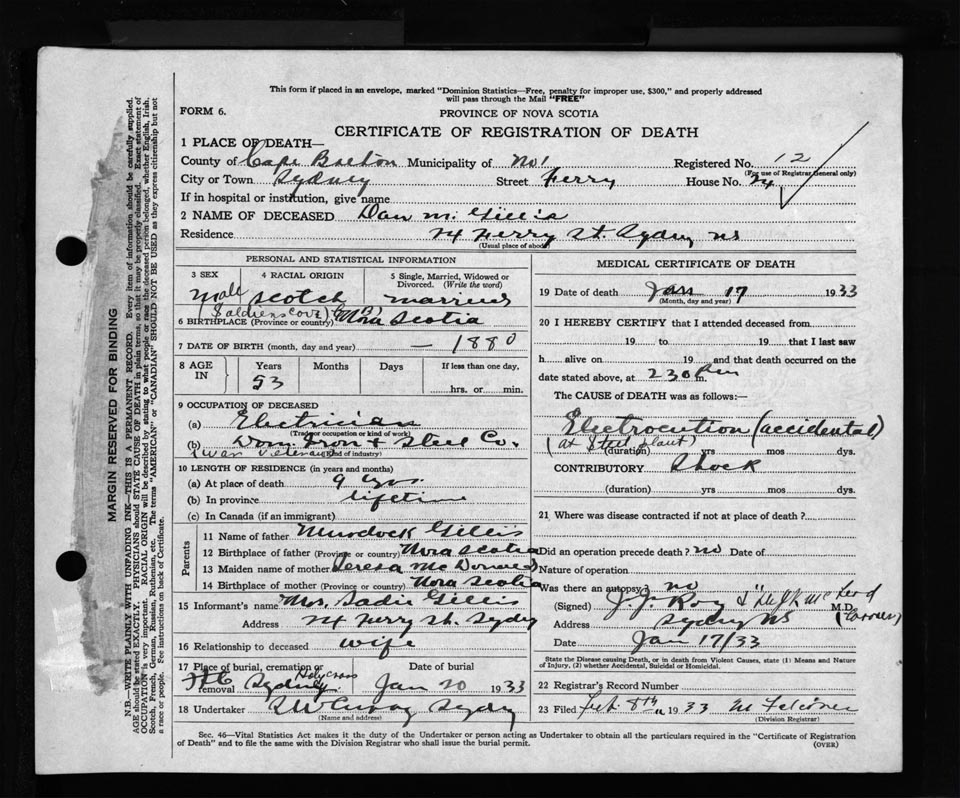 This form if placed in an envelope, marked "Dominion Statistics—Free, penalty for improper use, $300," and properly addressed
will pass through the Mail "FREE"
FORM 6.
PROVINCE OF NOVA SCOTIA
CERTIFICATE OF REGISTRATION OF DEATH
1 PLACE OF DEATH—
County of Cape Breton Municipality of No 1 Registered No. 12
(For use of Registrar General only)
City or Town Sydney Street Ferry House No. 74
If in hospital or institution, give name
2 NAME OF DECEASED Dan M. Gillis
Residence 74 Ferry St. Sydney NS
(Usual place of abode)
PERSONAL AND STATISTICAL INFORMATION
3 SEX 4 RACIAL ORIGIN 5 Single, Married, Widowed or Divorced. (Write the word)
Male Scotch Married
(Soldiers Cove)
6 BIRTHPLACE (Province or country) Nova Scotia
7 DATE OF BIRTH (month, day and year) — 1880
8 AGE IN Years Months Days If less than one day,
53 hrs. or min.
9 OCCUPATION OF DECEASED
(a) Electrician
(Trade or occupation or kind of work)
(b) Dom. Iron & Steel Co.
(War Veteran) (Kind of industry)
10 LENGTH OF RESIDENCE (in years and months)
(a) At place of death 9 yrs.
(b) In province lifetime
(c) In Canada (if an immigrant)
Parents
11 Name of father Murdock Gillis
12 Birthplace of father (Province or country) Nova Scotia
13 Maiden name of mother Teresa McDonald
14 Birthplace of mother (Province or country) Nova Scotia
15 Informant's name Mrs. Sadie Gillis
Address 74 Ferry St. Sydney
16 Relationship to deceased wife
17 Place of burial, cremation or removal Date of burial
Holy Cross
Sydney Jan 20 1933
18 Undertaker Sydney
(Name and address)
MEDICAL CERTIFICATE OF DEATH
19 Date of death Jan 17 1933
(Month, day and year)
20 I HEREBY CERTIFY that I attended deceased from
19 to 19 that I last saw
h alive on 19 and that death occurred on the
date stated above, at 230 Pm m.
The CAUSE of DEATH was as follows:—
Electrocution (accidental)
(at Steel plant)
(duration) yrs mos dys.
CONTRIBUTORY Shock
(duration) yrs mos dys.
21 Where was disease contracted if not at place of death?
Did an operation precede death? no Date of
Nature of operation
Was there an autopsy? no
(Signed) J. J. Roy & McLeod M.D.
(Coroner)
Address Sydney NS
Date Jan 17/33
State the Disease causing Death, or in death from Violent Causes, state (1) Means and Nature
of Injury, (2) whether Accidental, Suicidal or Homicidal.
22 Registrar's Record Number
23 Filed Feb. 8th 1933 M Falconer
(Division Registrar)
Sec. 46—Vital Statistics Act makes it the duty of the Undertaker or person acting as Undertaker to obtain all the particulars required in the "Certificate of Registration
of Death" and to file the same with the Division Registrar who shall issue the burial permit.
(OVER)
MARGIN RESERVED FOR BINDING
N.B.—WRITE PLAINLY WITH UNFADING INK—THIS IS A PERMANENT RECORD. Every item of information should be carefully supplied.
AGE should be stated EXACTLY. PHYSICIANS should STATE CAUSE OF DEATH in plain terms, so that it may be properly classified. Exact statement of
OCCUPATION is very important. RACIAL ORIGIN will be described by stating to what people or race the deceased person belonged, whether English, Irish,
Scotch, French, German, Russian, Ruthenian, etc. The terms "AMERICAN" or "CANADIAN" SHOULD NOT BE USED as they express citizenship but not
a race or people. Fee instructions on back of Certificate.